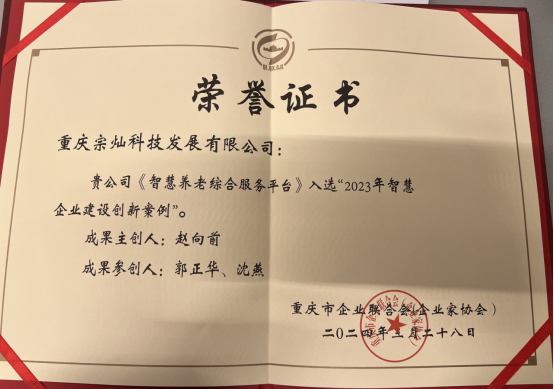 荣誉证书
重庆宗灿科技发展有限公司：
贵公司《智慧养老综合服务平台》入选“2023年智慧
企业建设创新案例”。
成果主创人：赵向前
成果参创人：郭正华、沈燕
重庆市企业联合会(企业家协会)
二〇二四年三月二十八日